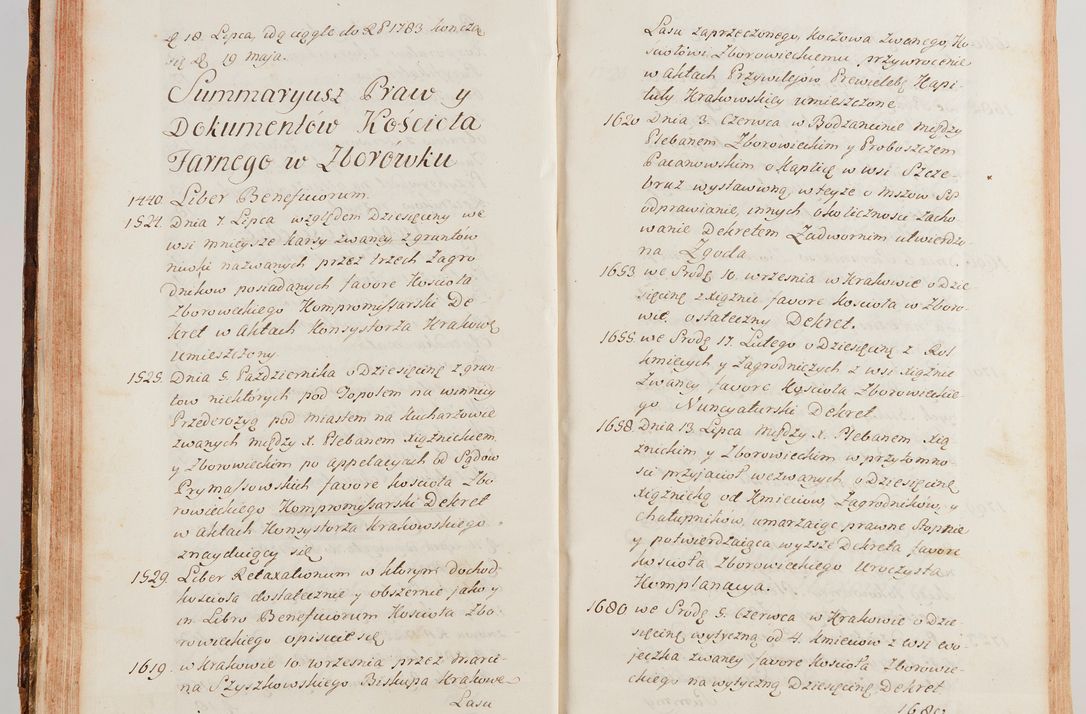 d 18. Lipca, idą ciągle do R 1783 kończą
się d. 19 maja.
Summaryusz Praw y
Dokumentów Kościoła
Farnego w Zborówku
1440. Liber Beneficiorum.
1524. Dnia 7. Lipca względem Dziesięciny we
wsi mnieysze karsy zwaney, z gruntów
niwki nazwanych przez trzech zagro
dników posiadanych favore Kościoła
Zborowckiego Kompromissarski De-
kret w Aktach Konsystorza Krakows
umieszczony.
1525. Dnia 5. Października o Dziesięcinę z grun-
tow niektorych pod Topolem na winnicy
Przederożyą pod miastem na Kucharzowie
zwanych między x. Plebanem xiąznickiem
y Zborowieckim po appelacyach od Sądow
Prymassowskich favore kościoła Zbo
rowieckiego Kompromissarski Dekret
w Aktach Konsystorza Krakowskiego
znayduiący się
1529. Liber Retaxationum w którym dochod
kościoła dostatecznie y obszernie jako y
in Libro Beneficiorum Kościoła Zbo-
rowieckiego opisuie się
1619. w Krakowie 10 Września przez Marci-
na Szyszkowskiego Biskupa Krakowe
Lasu
Lasu zaprzeczonego, koczowa zwanego, Ko-
ściołowi Zborowieckiemu przywrocenie
w Aktach Przywilejów Przewielebę Kapi-
tuły Krakowskiey umieszczone
1620 Dnia 3. Czerwca w Bodzancinie między
Plebanem Zborowieckim y Proboszczem
Pacanowskim o Kaplicę w wsi Szcze-
bruz wystawioną, w teyże o Mszow SS
odprawianie, innych okoliczności zacho
wanie Dekretem Zadwornim utwierdzo-
na Zgoda.
1653 we Srodę 10. września w Krakowie o Dzie
sięcinę z xiąznic favore kościoła w Zboro-
wie. ostateczny Dekret.
1655. we Srodę 17. Lutego o Dziesięcinę z Rol
kmiecych y zagrodniczych z wsi xiąznic
zwaney favore kościoła Zborowieckie-
go Nuncyaturski Dekret
1658. Dnia 13. Lipca między x. Plebanem xią
znickim y Zborowieckim w przytomno-
ści przyjaciół wezwanych o Dziesięcinę
xiąznicką od Kmieciow, Zagrodników, y
chałupników, umarzaiąc prawne Stopnie
y potwierdzaiąca wyzsze Dekreta favore
kościoła Zborowieckiego Uroczysta
Komplanacya.
1680 we Srodę 5. Czerwca w Krakowie o Dzie-
sięcinę wytyczną od 4. kmieciow z wsi wo
jeczka zwaney favore Kościoła Zborowie-
ckiego na wytyczną Dziesięcinę Dekret